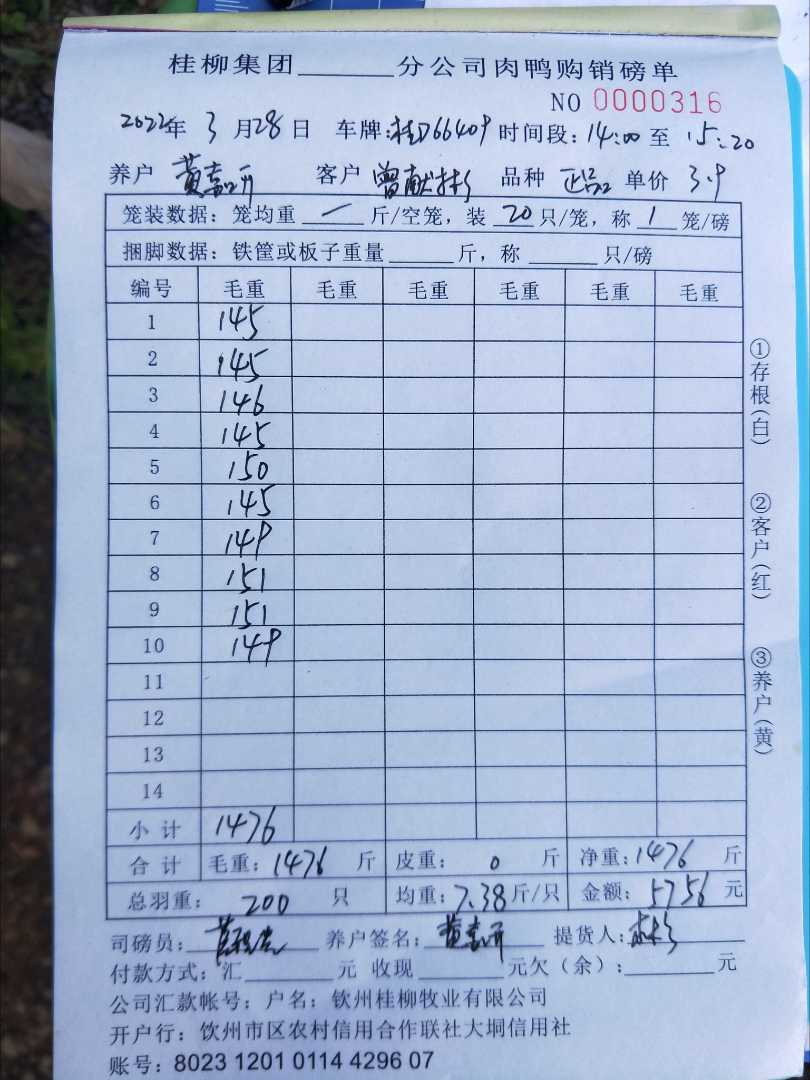 桂柳集团______分公司肉鸭购销磅单
NO 0000316
2022年 3月28日 车牌:桂D66409 时间段:14:00至15:20
养户 黄嘉昕 客户 曾献彬 品种 正品 单价 3.9
笼装数据: 笼均重 一 斤/空笼, 装 20 只/笼, 称 1 笼/磅
捆脚数据: 铁筐或板子重量______斤, 称______只/磅
编号 毛重 毛重 毛重 毛重 毛重 毛重
1 145
2 145
3 146
4 145
5 150
6 145
7 149
8 151
9 151
10 149
11
12
13
14
小计 1476
合计 毛重: 1476 斤 皮重: 0 斤 净重: 1476 斤
总羽重: 200 只 均重: 7.38 斤/只 金额: 5756 元
司磅员: 养户签名: 黄嘉昕 提货人:
付款方式: 汇______元 收现______元欠(余):______元
公司汇款帐号: 户名: 钦州桂柳牧业有限公司
开户行: 钦州市区农村信用合作联社大垌信用社
账号: 8023 1201 0114 4296 07
①存根(白)
②客户(红)
③养户(黄)